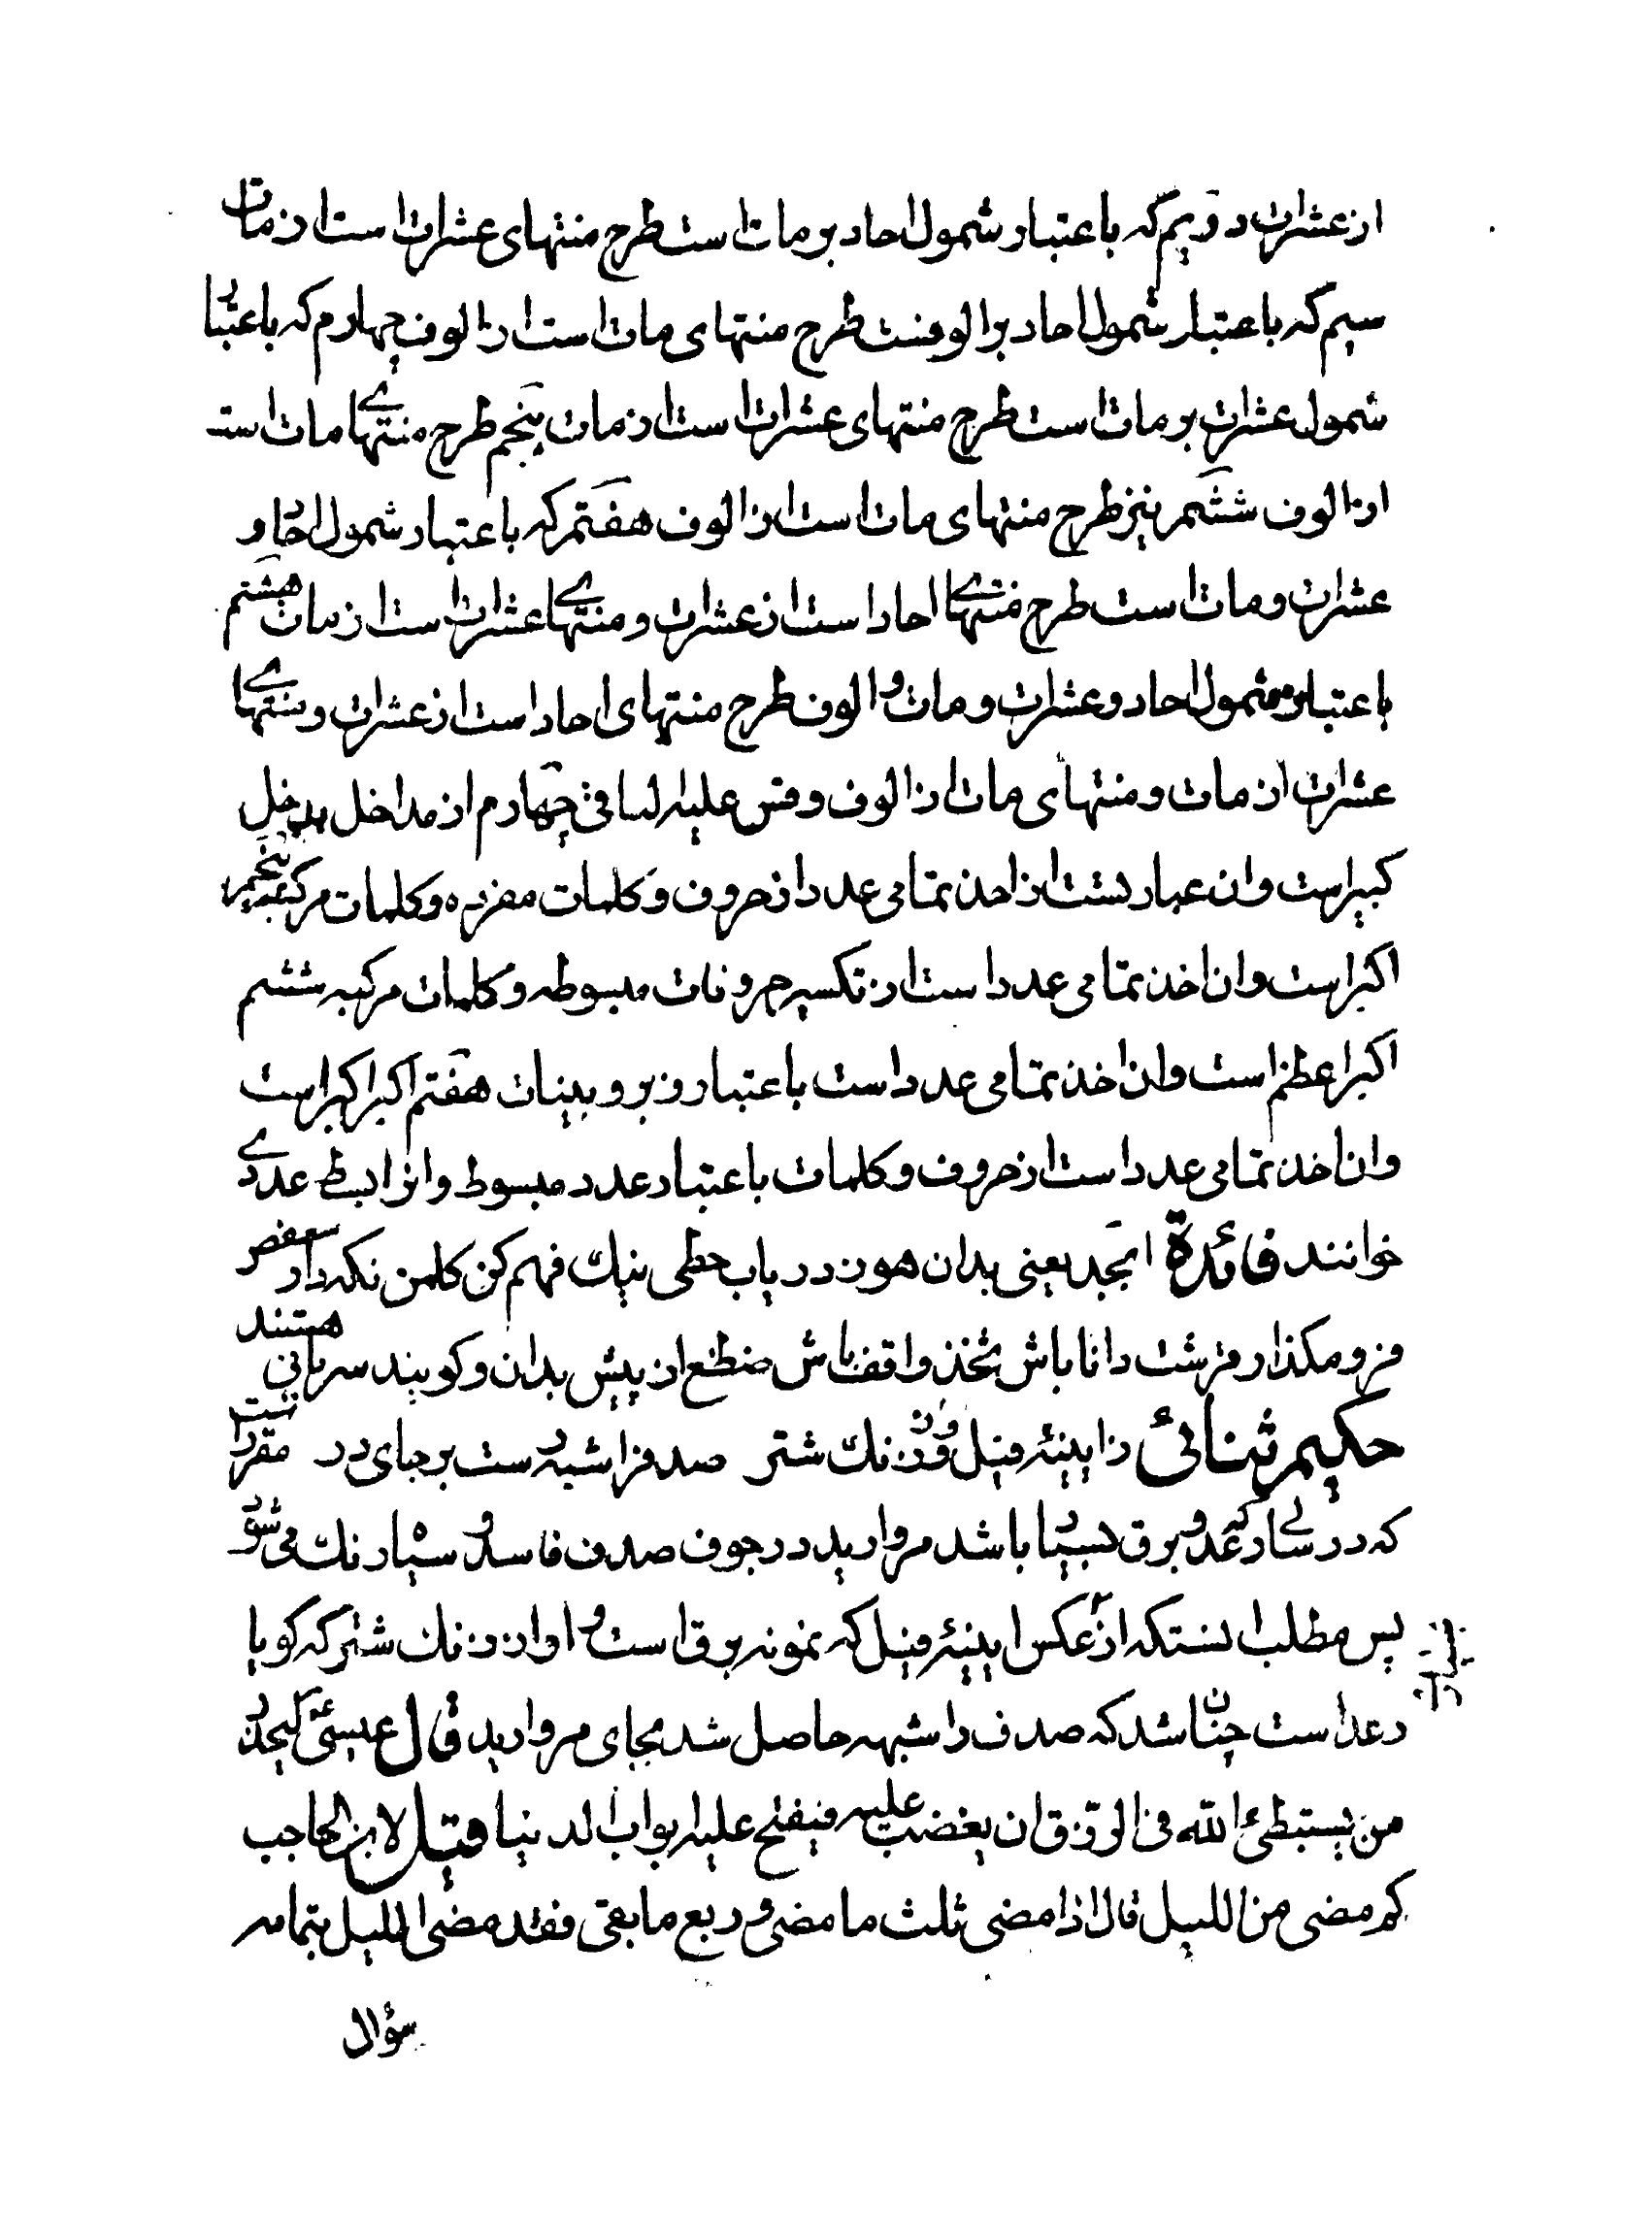 از عشرات دویم که باعتبار شمول احاد بر مات است طرح منتهای عشرات است از مات
سیم که باعتبار شمول احاد بر الوفست طرح منتهای مات است از الوف چهارم که باعتبار
شمول عشرات بر مات است طرح منتهای عشرات است از مات پنجم طرح منتهای مات است
از الوف ششم نیز طرح منتهای مات است از الوف هفتم که باعتبار شمول احاد و
عشرات و مات است طرح منتهای احاد است از عشرات و منتهای عشرات است از مات هشتم
باعتبار شمول احاد و عشرات و مات و الوف طرح منتهای احاد است از عشرات و منتهای
عشرات از مات و منتهای مات از الوف و قس علیه لباقی چهارم از مداخل مدخل
کبیر است وان عبارتست از اخذ تمامی عدد از حروف و کلمات مفرده و کلمات مرکبه پنجم
اکبر است وان اخذ تمامی عدد است از تکسیر حروفات مبسوطه و کلمات مرکبه ششم
اکبر اعظم است وان اخذ تمامی عدد است باعتبار زبر و بینات هفتم اکبر اکبر است
وان اخذ تمامی عدد است از حروف و کلمات باعتبار عدد مبسوط وانرا بسط عددی
خوانند فائدة ابجد یعنی بدان هوز دریاب حطی نیك فهم کن کلمن نکه دار سعفص
فرو مکذار قرشت دانا باش ثخذ واقف باش ضظغ از پیش بدان و کویند سریانی هستند
حکیم ثنائی ز ایینئه فیل و زنك شتر صدف را شبه رست بر جای در مقرر است
که در سالی که رعد و برق بسیار باشد مروارید در جوف صدف فاسد و سیاه رنك می شود
پس مطلب اینستکه از عکس ایینئه فیل که نمونه برق است و اواز زنك شتر که کویا
رعد است چنان شد که صدف را شبهه حاصل شد بجای مروارید قال عیسی ع لیحذر
من یستبطئ الله فی الرزق ان یغضب علیه فیفتح علیه ابواب الدنیا قیل لابن الحاجب
کم مضی من اللیل قال اذا مضی ثلث ما مضی و ربع ما بقی فقد مضی اللیل بتمامه
سؤال